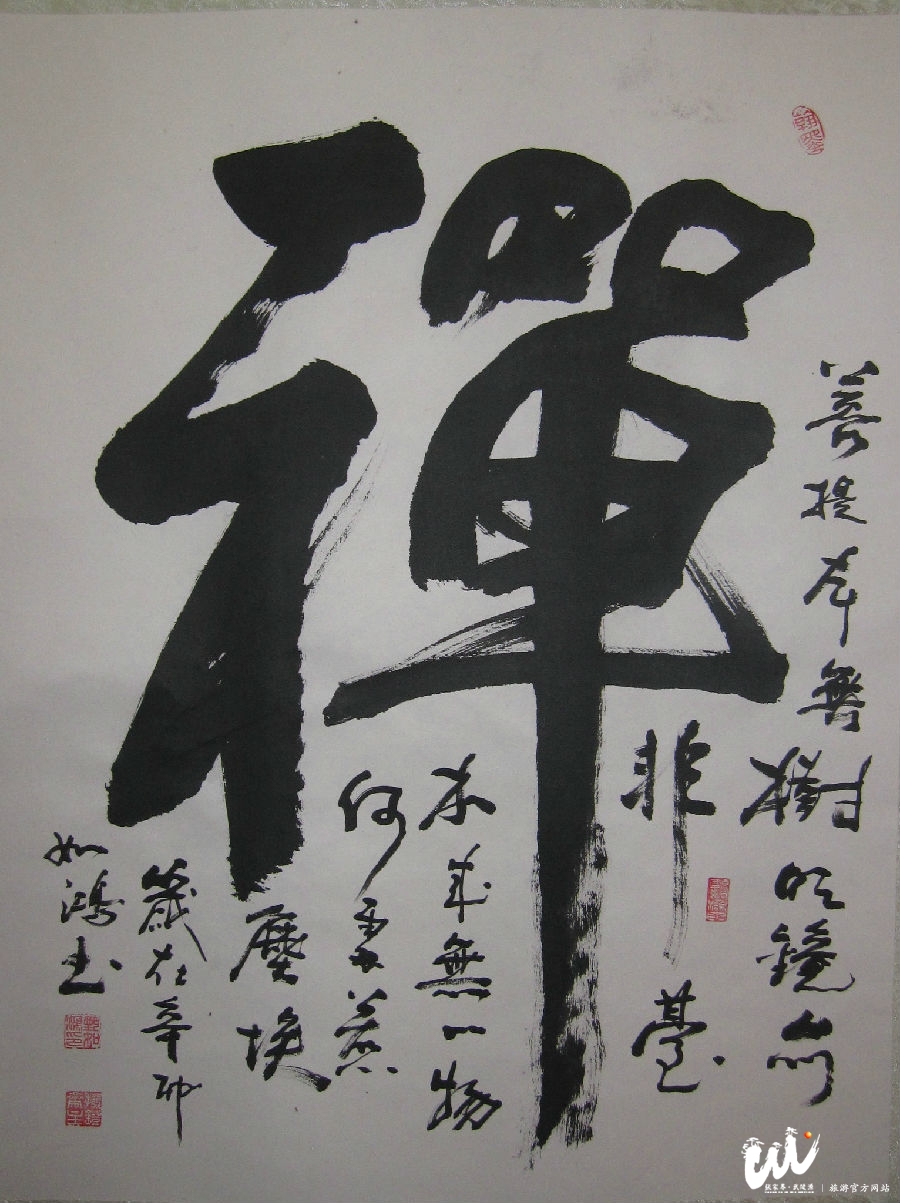 禪
菩提本無樹明鏡亦
非臺
本來無一物
何處惹
塵埃
歲在辛卯
如鴻书
张家界·武陵源 | 旅游官方网站